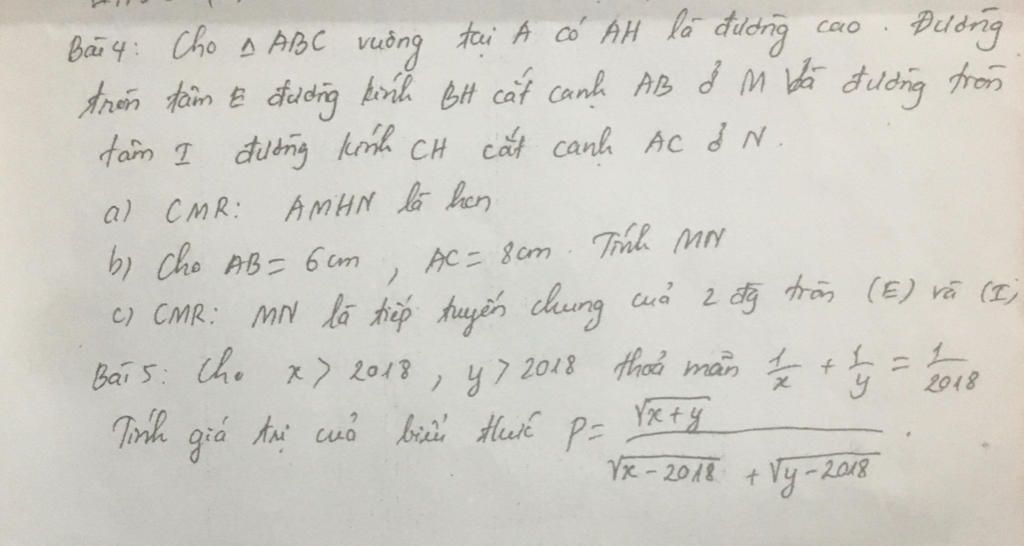 Bài 4: Cho Δ ABC vuông tại A có AH là đường cao. Đường
tròn tâm E đường kính BH cắt cạnh AB ở M và đường tròn
tâm I đường kính CH cắt cạnh AC ở N.
a) CMR: AMHN là hcn
b) Cho AB = 6cm, AC = 8cm. Tính MN
c) CMR: MN là tiếp tuyến chung cuả 2 đg tròn (E) và (I)
Bài 5: Cho x > 2018, y > 2018 thoả mãn 1/x + 1/y = 1/2018
Tính giá trị cuả biểu thức P = √(x+y) / (√(x-2018) + √(y-2018)).